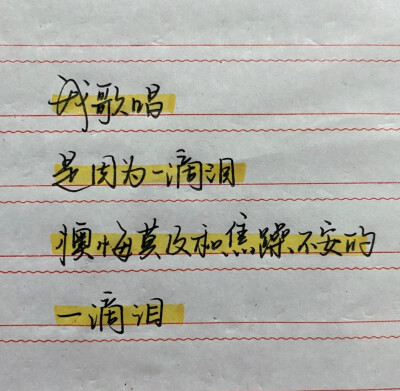 我歌唱
是因为一滴泪
懊悔莫及和焦躁不安的
一滴泪